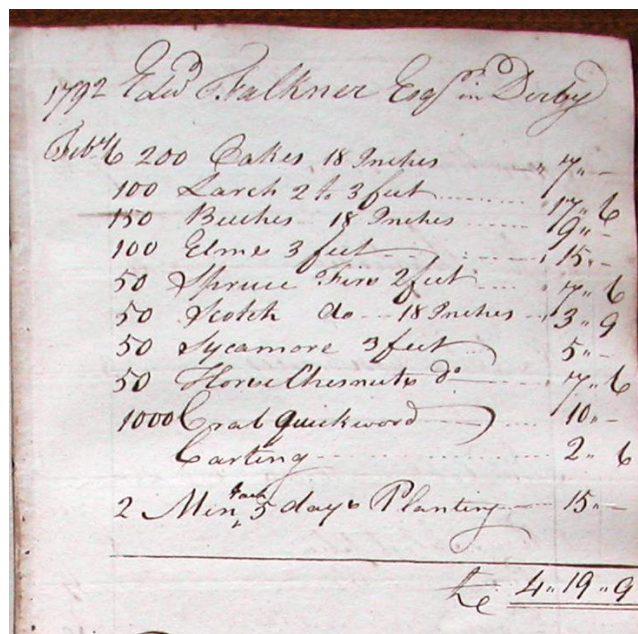 1792 Edwd. Falkner Esqr. in Derby
Feby. 6 200 Oakes 18 Inches " 7 " -
100 Larch 2 to 3 feet " 17 " 6
150 Beeches 18 Inches 9 " -
100 Elms 3 feet " 15 " -
50 Spruce Firs 2 feet 7 " 6
50 Scotch do 18 Inches 3 " 9
50 Sycamore 3 feet 5 " -
50 Horse Chesnuts do 7 " 6
1000 Crab Quickwood 10 " -
Carting 2 " 6
2 Men each 5 days Planting 15 " -
£ 4 " 19 " 9